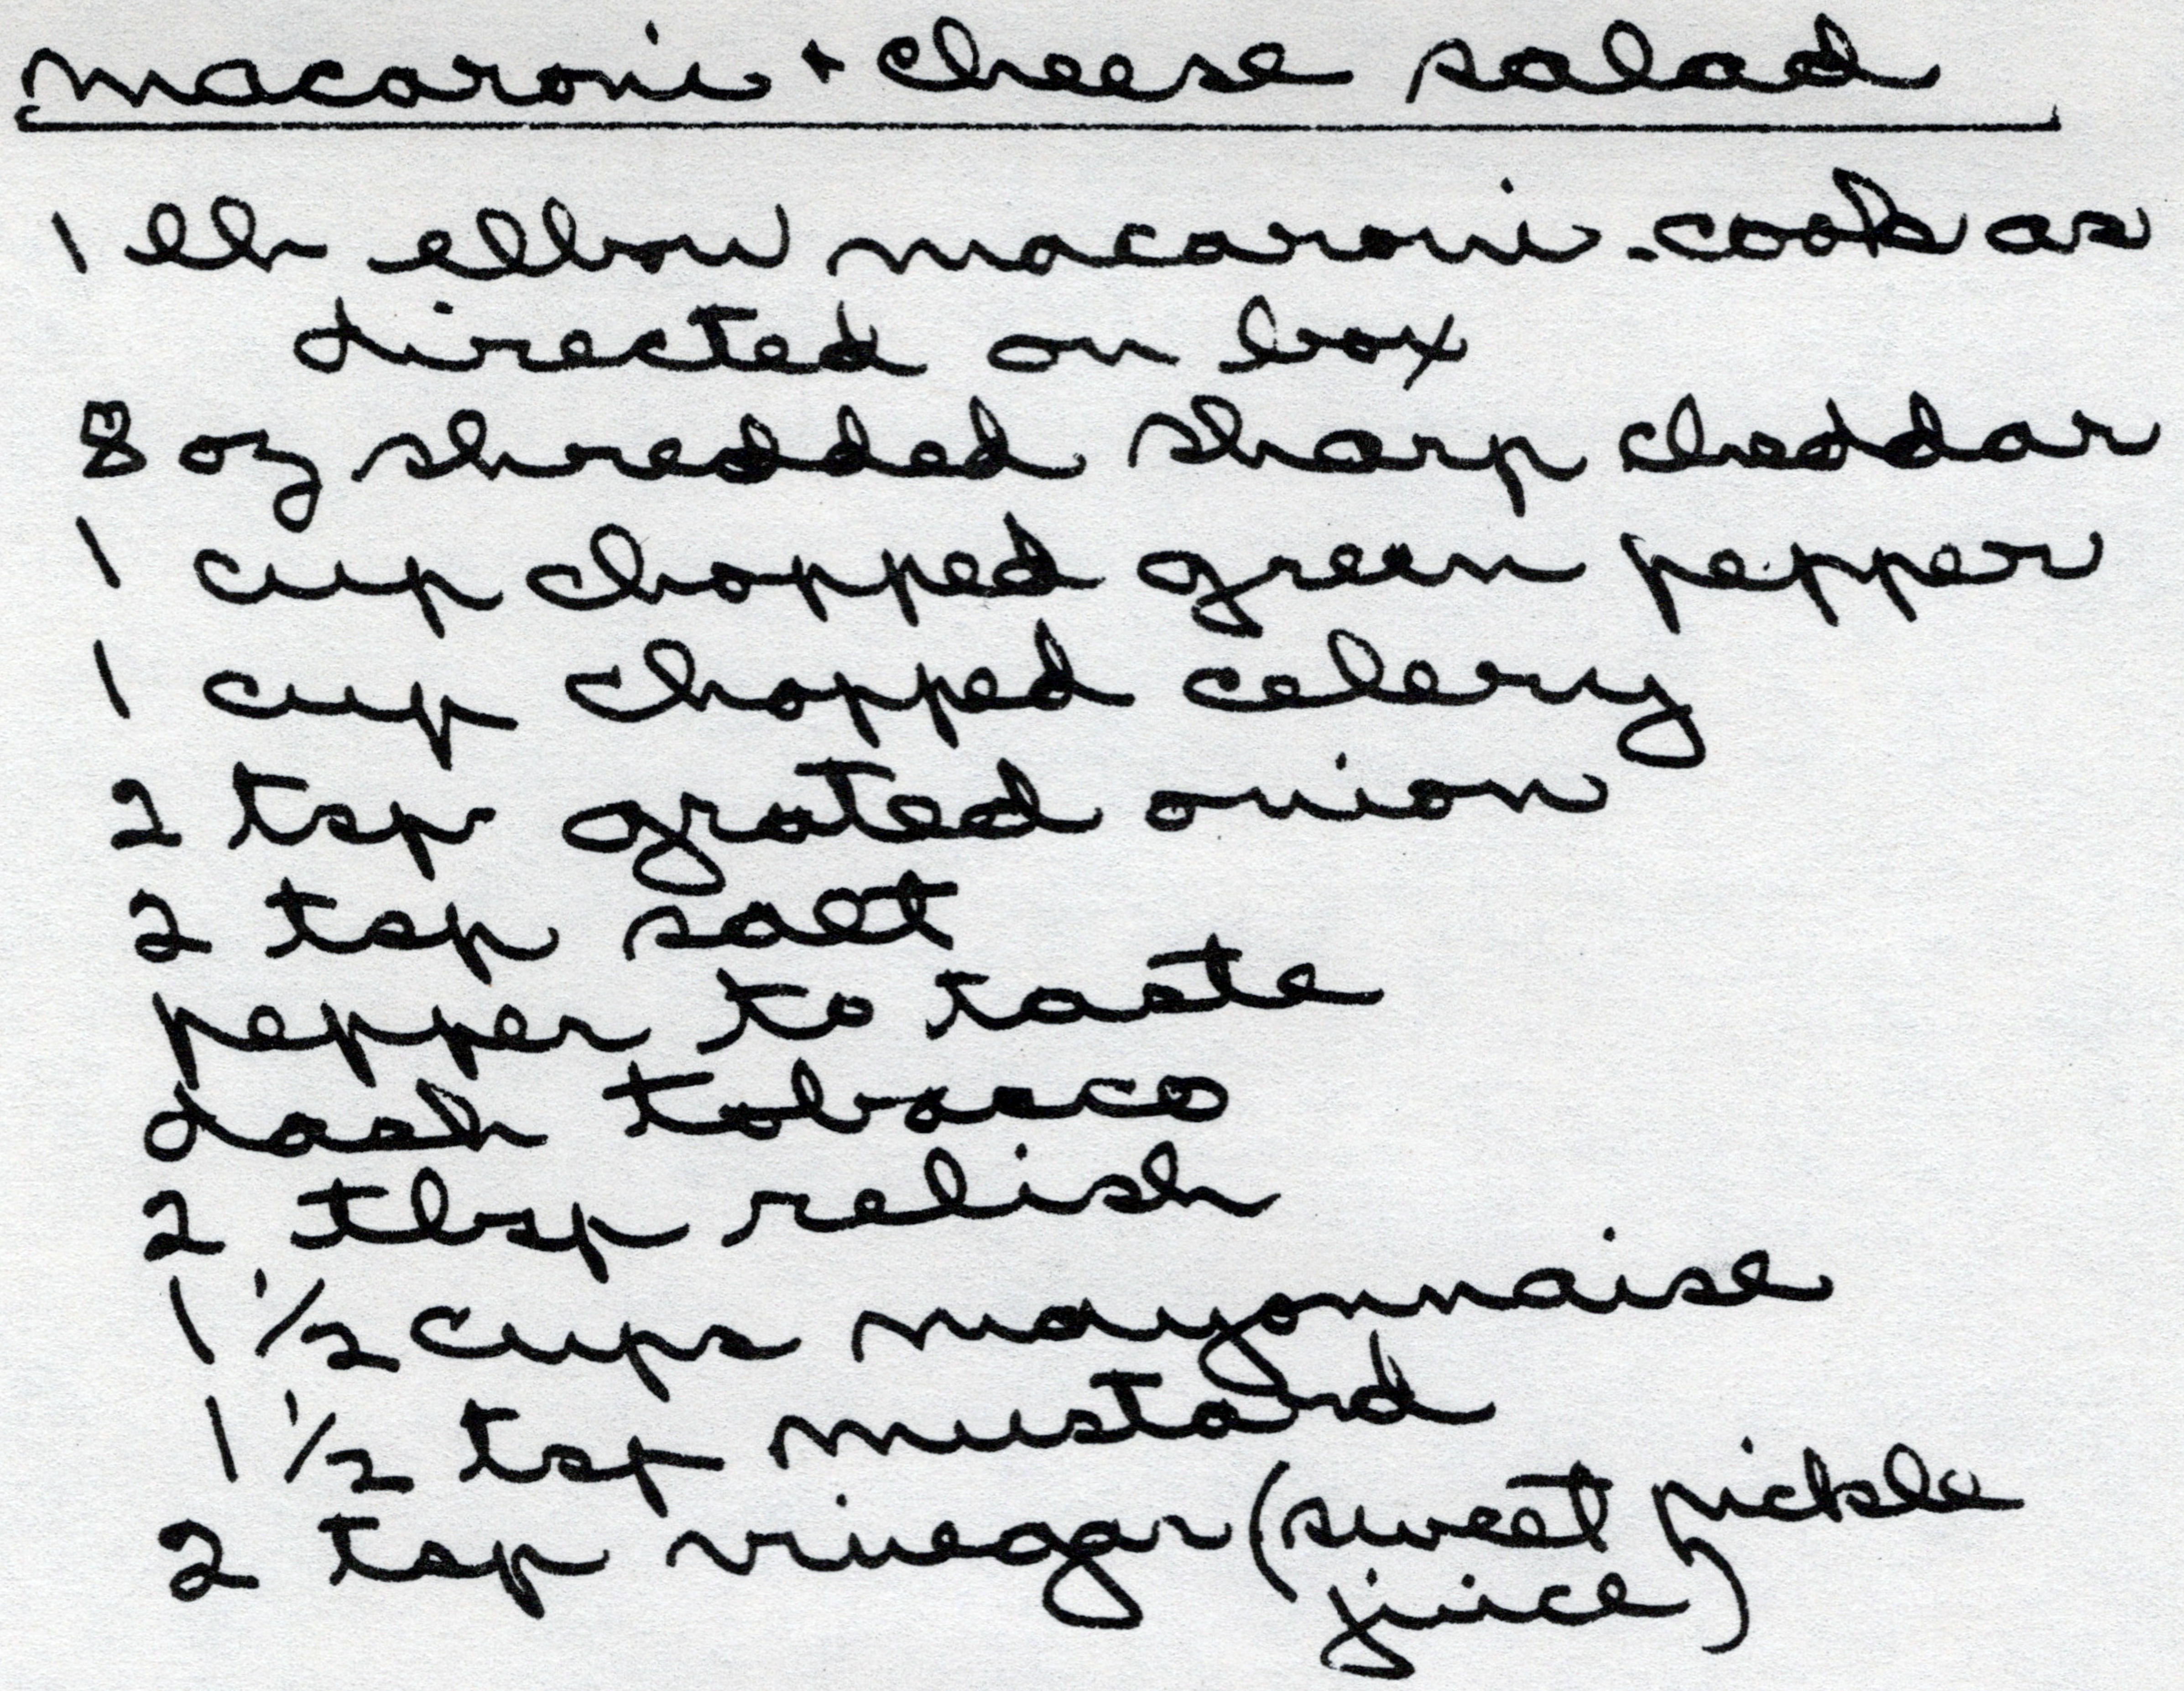 macaroni + cheese salad
1 lb elbow macaroni - cook as
directed on box
8 oz shredded sharp cheddar
1 cup chopped green pepper
1 cup chopped celery
2 tsp grated onion
2 tsp salt
pepper to taste
dash tobasco
2 tbsp relish
1 1/2 cups mayonnaise
1 1/2 tsp mustard
2 tsp vinegar (sweet pickle
juice)